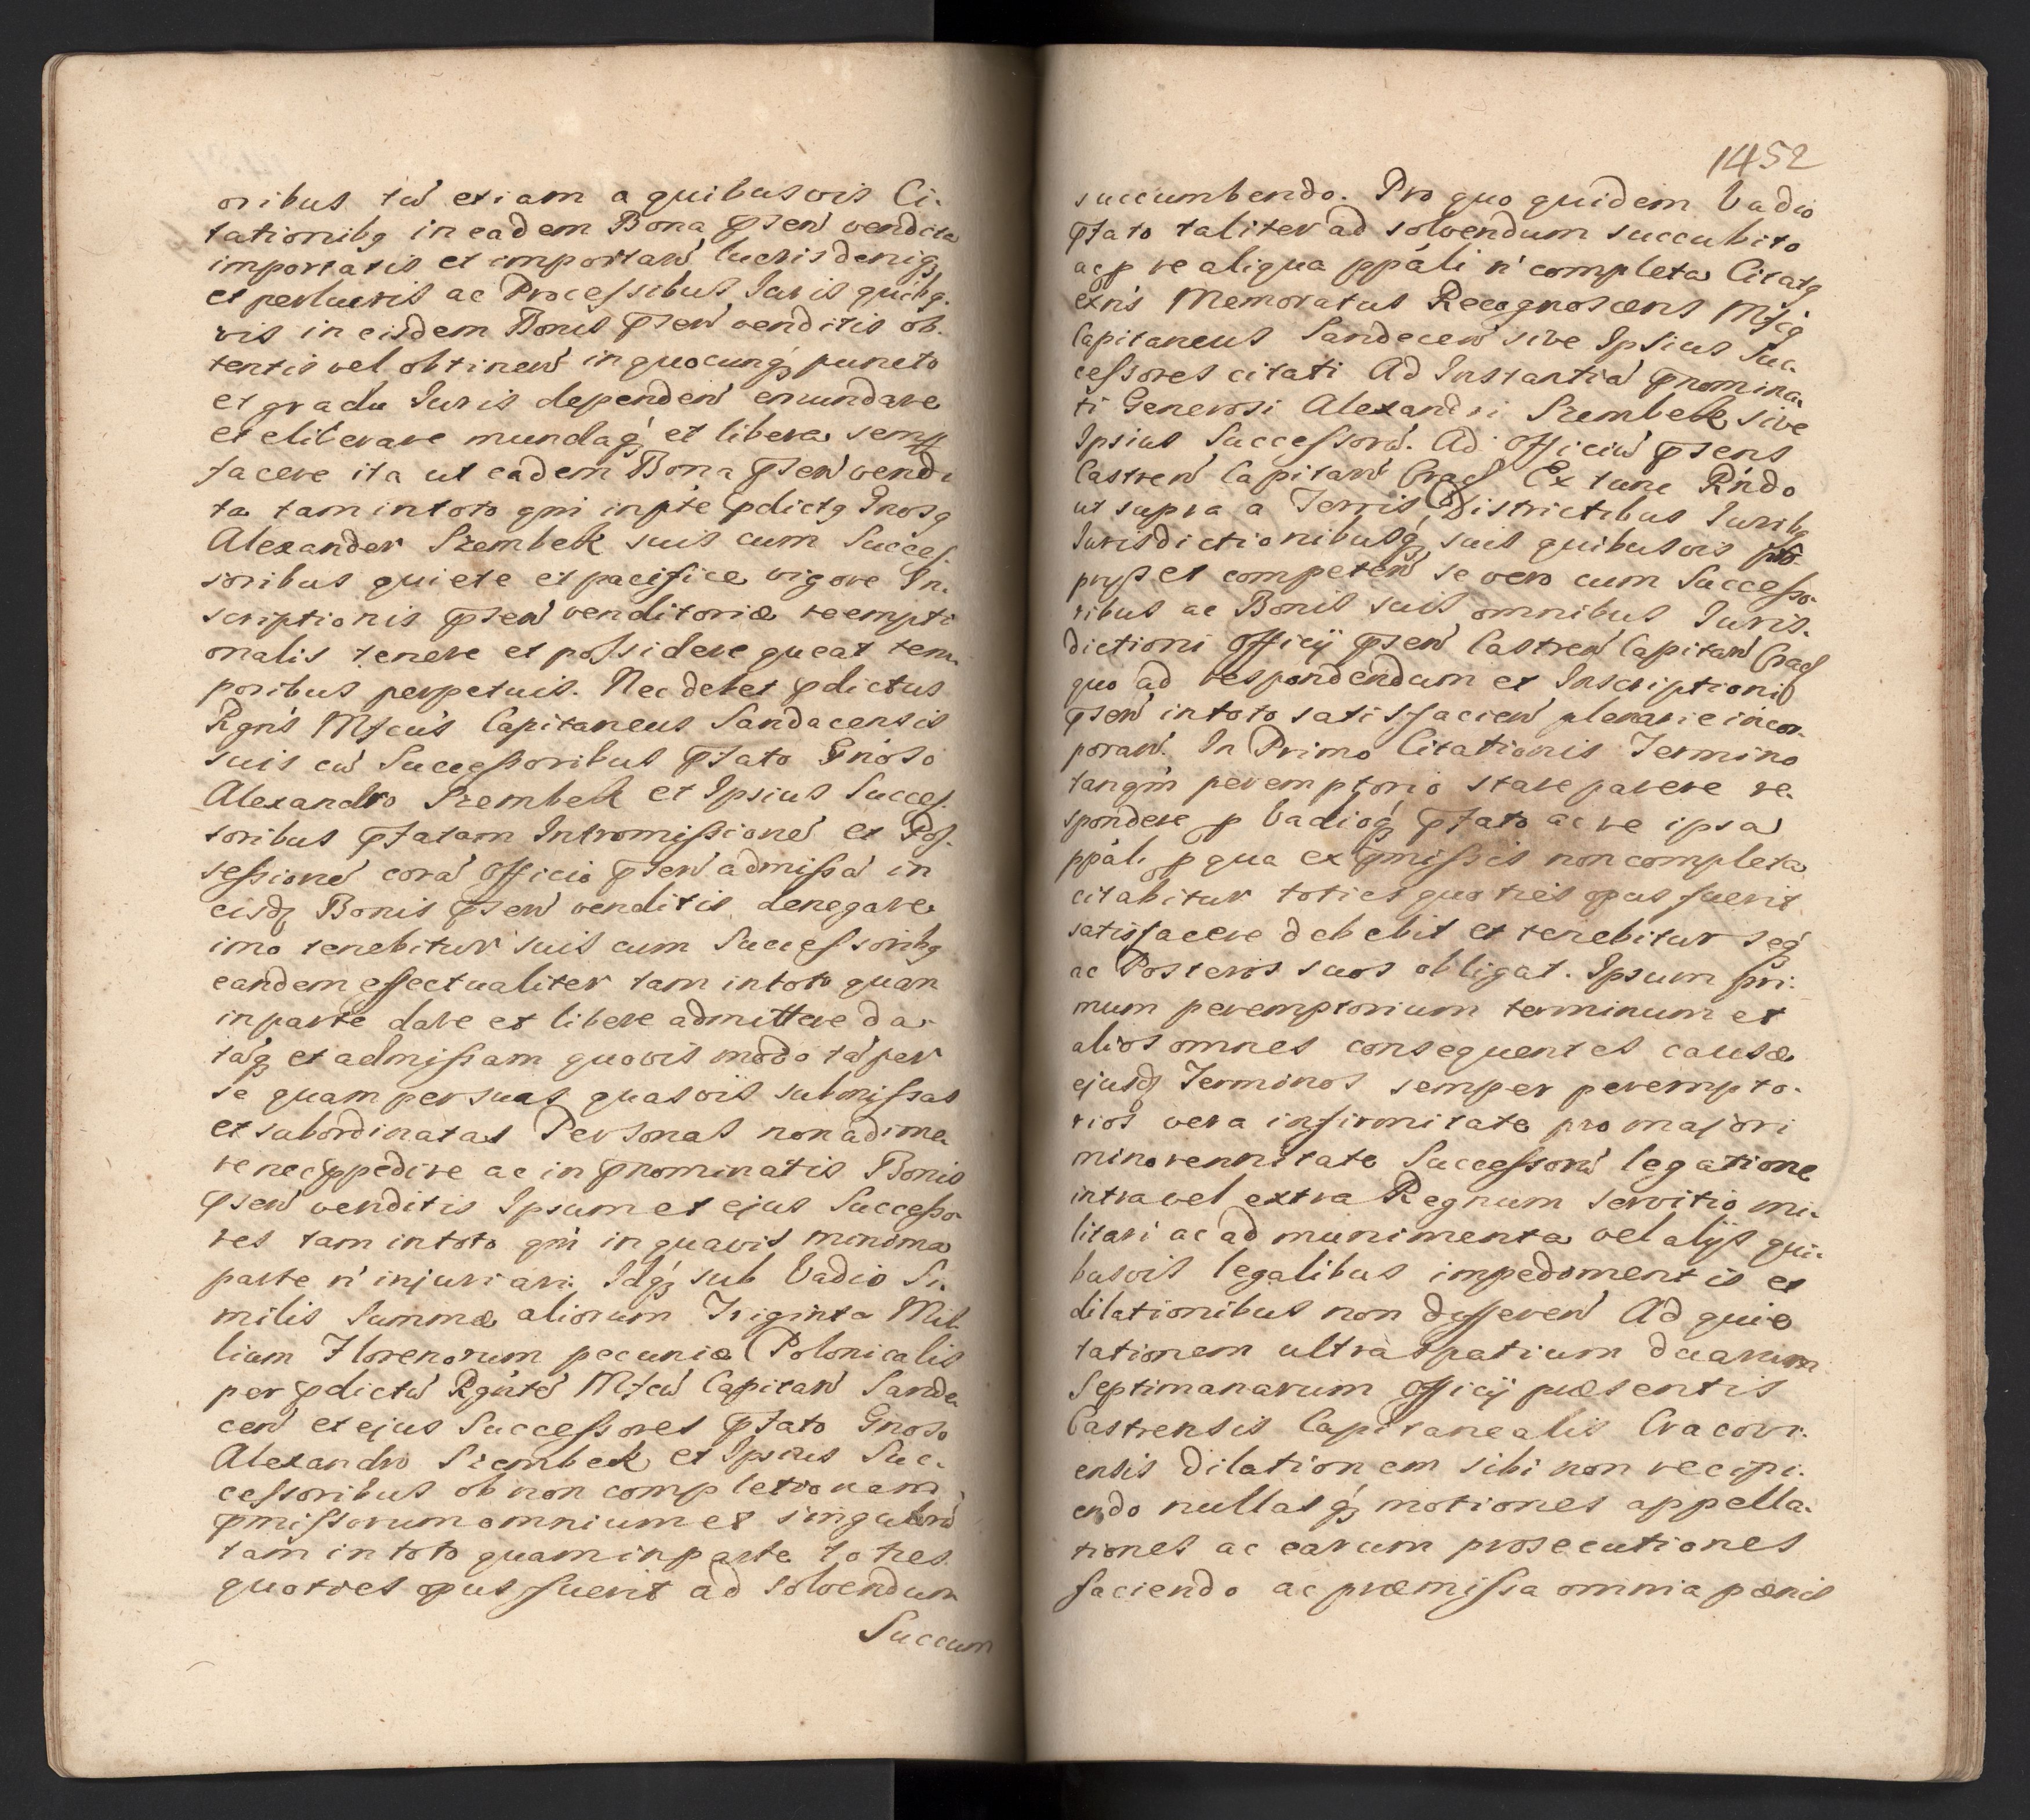 oribus tū etiam a quibusvis Ci-
tationibq in eadem Bona p̄sen̄ vendita
importatis et importan̄ lucris deniq₃
et perlucris ac Processibus Juris quibq-
vis in eisdem Bonis p̄sen̄ venditis ob-
tentis vel obtinen̄ in quocunq₃ puncto
et gradu Juris dependen̄ emundare
et eliberare mundaq₃ et libera semp
facere ita ut eadem Bona p̄sen̄ vendi
ta tam in toto qm̄ in pte pdictq Gnosq
Alexander Szembek suis cum Succes-
soribus quiete et pacifice vigore In-
scriptionis p̄sen̄ venditoriæ reempti
onalis tenere et possidere queat tem-
poribus perpetuis. Nec debet pdictus
Rgn̄s Mfcūs Capitaneus Sandacensis
suis cū Successoribus p̄fato Gnōso
Alexandro Szembek et Ipsius Succes-
soribus p̄fatam Intromissionē et Pos-
sessionē corā Officio p̄sen̄ admissā in
eisdꝫ Bonis p̄sen̄ venditis denegare
imo tenebitur suis cum Successoribq
eandem effectualiter tam in toto quam
in parte dare et libere admittere da-
tāq₃ et admissam quovis modo tā per
se quam per suas quasvis submissas
et subordinatas Personas non adime-
re nec ppedire ac in p̄nominatis Bonis
p̄sen̄ venditis Ipsum et ejus Successo-
res tam in toto qm̄ in quavis minima
parte n̄ injuriari. Idq₃ sub Vadio Si-
milis Summæ aliorum Triginta Mil-
lium Florenorum pecuniæ Polonicalis
per pdictū Rgn̄tē Mfcū Capitan̄ Sande-
cen̄ et ejus Successores p̄fato Gnoso
Alexandro Szembek et Ipsius Suc-
cessoribus ob non completionem
p̄missorum omnium et singulorū
tam in toto quam in parte toties
quoties opus fuerit ad solvendum
Succum
1452
succumbendo. Pro quo quidem Vadio
p̄fato taliter ad solvendum succubito
ac p re aliqua ppāli n̄ completa Citatq
exn̄s Memoratus Recognoscens Mfcq
Capitaneus Sandecen̄ sive Ipsius Suc-
cessores citati Ad Instantiā p̄nomina-
ti Generosi Alexandri Szembek sive
Ipsius Successorū. Ad Officiū p̄sens
Castren̄ Capitan̄ Crac Ex tunc Rn̄do
ut supra a Terris Districtibus Juribq
Jurisdictionibusq₃ suis quibusvis pro-
prijs et competen̄ se vero cum Successo-
ribus ac Bonis suis omnibus Juris-
dictioni Officij p̄sen̄ Castren̄ Capitan̄ Crac
quo ad respondendum et Inscriptioni
p̄sen̄ in toto satisfacien̄ plenarie incor-
poran̄. In Primo Citationis Termino
tanqm̄ peremptorio stare parere re-
spondere p Vadioq₃ p̄fato ac re ipsa
ppāli p qua ex p̄missis non completa
citabitur toties quoties opus fuerit
satisfacere debebit et tenebitur seq₃
ac Posteros suos obligat. Ipsum pri-
mum peremptorium terminum et
alios omnes consequentes causæ
ejusdꝫ Terminos semper perempto-
rios vera infirmitate pro majori
minorennitate Successorū legatione
intra vel extra Regnum servitio mi-
litari ac ad munimenta vel alijs qui-
busvis legalibus impedimentis et
dilationibus non differen̄ Ad quie
tationem ultra spatium duarum
Septimanarum Officij præsentis
Castrensis Capitanealis Cracovi-
ensis dilationem sibi non recipi-
endo nullasq₃ motiones appella-
tiones ac earum prosecutiones
faciendo ac præmissa omnia pænis